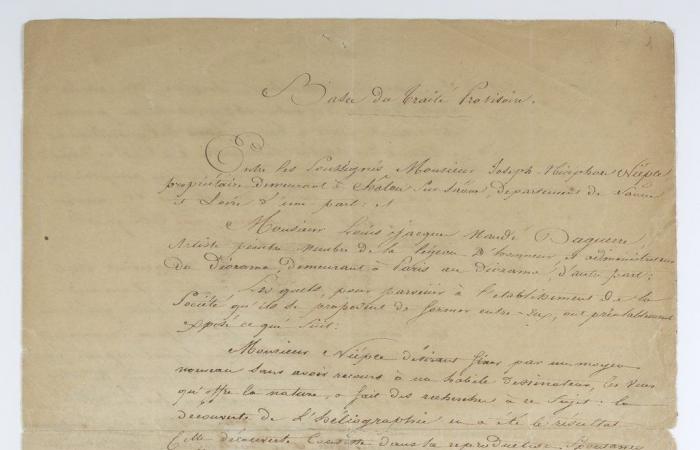 Bases du Traité Provisoire.
Entre les Soussignés Monsieur Joseph Nicéphore Niépce
propriétaire demeurant à Chalon Sur Saône, département de Saône
et Loire d'une part: et
Monsieur Louis Jacques Mandé Daguerre
Artiste peintre membre de la légion d'honneur, et administrateur
du Diorama, demeurant à Paris au diorama, d'autre part;
Les quels, pour parvenir à l'établissement de la
Société qu'ils se proposent de former entre-eux, ont préalablement
exposé ce qui Suit:
Monsieur Niépce désirant fixer par un moyen
nouveau Sans avoir recours à un habile dessinateur, les vues
qu'offre la nature, a fait des recherches à ce Sujet: la
découverte de l'Héliographie en a été le résultat.
Cette découverte Consiste dans la reproduction Spontanée